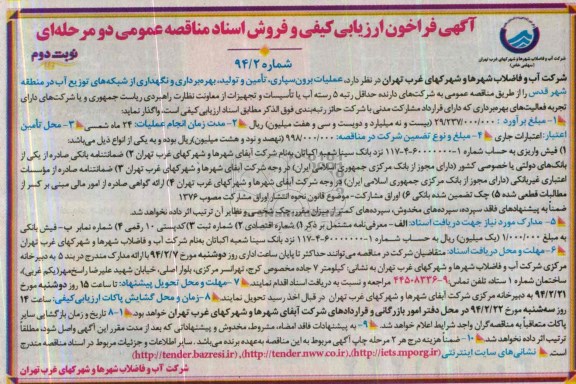 آگهی فراخون ارزیابی کیفی و فروش اسناد مناقصه عمومی دو مرحله‌ای
شماره ۹۴/۲
نوبت دوم
شرکت آب و فاضلاب شهرها و شهرکهای غرب تهران
(سهامی خاص)
شرکت آب و فاضلاب شهرها و شهرکهای غرب تهران در نظر دارد، عملیات برون‌سپاری، تأمین و تولید، بهره‌برداری و نگهداری از شبکه‌های توزیع آب در منطقه
شهر قدس را از طریق مناقصه عمومی به شرکت‌های دارنده حداقل رتبه ۵ رسته آب یا تأسیسات و تجهیزات از معاونت نظارت راهبردی ریاست جمهوری و یا شرکت‌های دارای
تجربه فعالیت‌های بهره‌برداری که دارای قرارداد مشارکت مدنی با شرکت حائز رتبه‌بندی فوق الذکر مطابق اسناد ارزیابی کیفی است، واگذار نماید:
۱- مبلغ برآورد: ۲۹/۲۳۷/۰۰۰/۰۰۰ (بیست و نه میلیارد و دویست و سی و هفت میلیون) ریال ۲- مدت زمان انجام عملیات: ۲۴ ماه شمسی ۳- محل تأمین
اعتبار: اعتبارات جاری ۴- مبلغ و نوع تضمین شرکت در مناقصه: ۹۹۸/۰۰۰/۰۰۰ (نهصد و نود و هشت میلیون) ریال بوده و به یکی از انواع ذیل می‌باشد:
۱) فیش واریزی به حساب شماره ۱-۶۰۰۰۰۰۰-۴-۱۱۷ نزد بانک سینا شعبه اکباتان به‌نام شرکت آبفای شهرها و شهرکهای غرب تهران ۲) ضمانتنامه بانکی صادره از یکی از
بانک‌های دولتی یا خصوصی کشور (دارای مجوز از بانک مرکزی جمهوری اسلامی ایران) در وجه شرکت آبفای شهرها و شهرکهای غرب تهران ۳) ضمانتنامه صادره از مؤسسات
اعتباری غیربانکی (دارای مجوز از بانک مرکزی جمهوری اسلامی ایران) در وجه شرکت آبفای شهرها و شهرکهای غرب تهران ۴) ارائه گواهی صادره از امور مالی مبنی بر کسر از
مطالبات قطعی شده ۵) چک تضمین شده بانکی ۶) اوراق مشارکت- موضوع قانون نحوه انتشار اوراق مشارکت مصوب ۱۳۷۶
ضمناً به پیشنهادهای فاقد سپرده، سپرده‌های مخدوش، سپرده‌های کمتر از میزان مقرر، چک شخصی و نظایر آن ترتیب اثر داده نخواهد شد.
۵- مدارک مورد نیاز جهت دریافت اسناد: الف- معرفی‌نامه مشتمل بر ذکر ۱) شماره اقتصادی ۲) شماره ثبت ۳) کدپستی ۱۰ رقمی ۴) شماره نمابر ب- فیش بانکی
به مبلغ ۱/۰۰۰/۰۰۰ (یک میلیون) ریال به حساب شماره ۱-۶۰۰۰۰۰۰-۴-۱۱۷ نزد بانک سینا شعبه اکباتان به‌نام شرکت آب و فاضلاب شهرها و شهرکهای غرب تهران
۶- مهلت و محل دریافت اسناد: متقاضیان شرکت در مناقصه می‌توانند حداکثر تا پایان ساعت اداری روز دوشنبه مورخ ۹۴/۲/۷ با ارائه مدارک مندرج در بند ۵ به دبیرخانه
مرکزی شرکت آب و فاضلاب شهرها و شهرکهای غرب تهران به نشانی: کیلومتر ۷ جاده مخصوص کرج، تهرانسر مرکزی، بلوار اصلی، خیابان شهید علیرضا راسخ‌مهر (یکم غربی)،
ساختمان شماره ۱ ستاد، تلفن تماس: ۹-۴۴۵۰۸۳۳۶ مراجعه و نسبت به دریافت اسناد اقدام نمایند. ۷- مهلت و محل تحویل پیشنهادات: تا ساعت ۱۵ روز دوشنبه مورخ
۹۴/۲/۲۱ به دبیرخانه مرکزی شرکت آبفای شهرها و شهرکهای غرب تهران در قبال اخذ رسید تحویل نمایند. ۸- زمان و محل گشایش پاکات ارزیابی کیفی: ساعت ۱۴
روز سه‌شنبه مورخ ۹۴/۲/۲۲ در محل دفتر امور بازرگانی و قراردادهای شرکت آبفای شهرها و شهرکهای غرب تهران خواهد بود. ۱-۸ تاریخ و زمان بازگشایی سایر
پاکات متعاقباً به مناقصه‌گران واجد شرایط اعلام خواهد شد. ۹- به پیشنهادات فاقد امضاء، مشروط، مخدوش و پیشنهاداتی که بعد از مدت مقرر این آگهی واصل شود، مطلقاً
ترتیب اثر داده نخواهد شد. ۱۰- ضمناً هزینه درج هر ۲ مرحله چاپ آگهی مربوط به این مناقصه به‌عهده برنده می‌باشد. سایر اطلاعات و جزئیات مربوط در اسناد مناقصه مندرج
است. نشانی‌های سایت اینترنتی (http://iets.mporg.ir)، (http://tender.nww.co.ir)، (http://tender.bazresi.ir)
شرکت آب و فاضلاب شهرها و شهرکهای غرب تهران